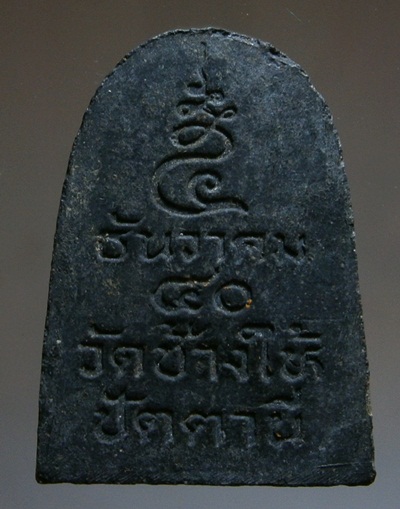 ธันวาคม
๔๐
วัดช้างให้
ปัตตานี